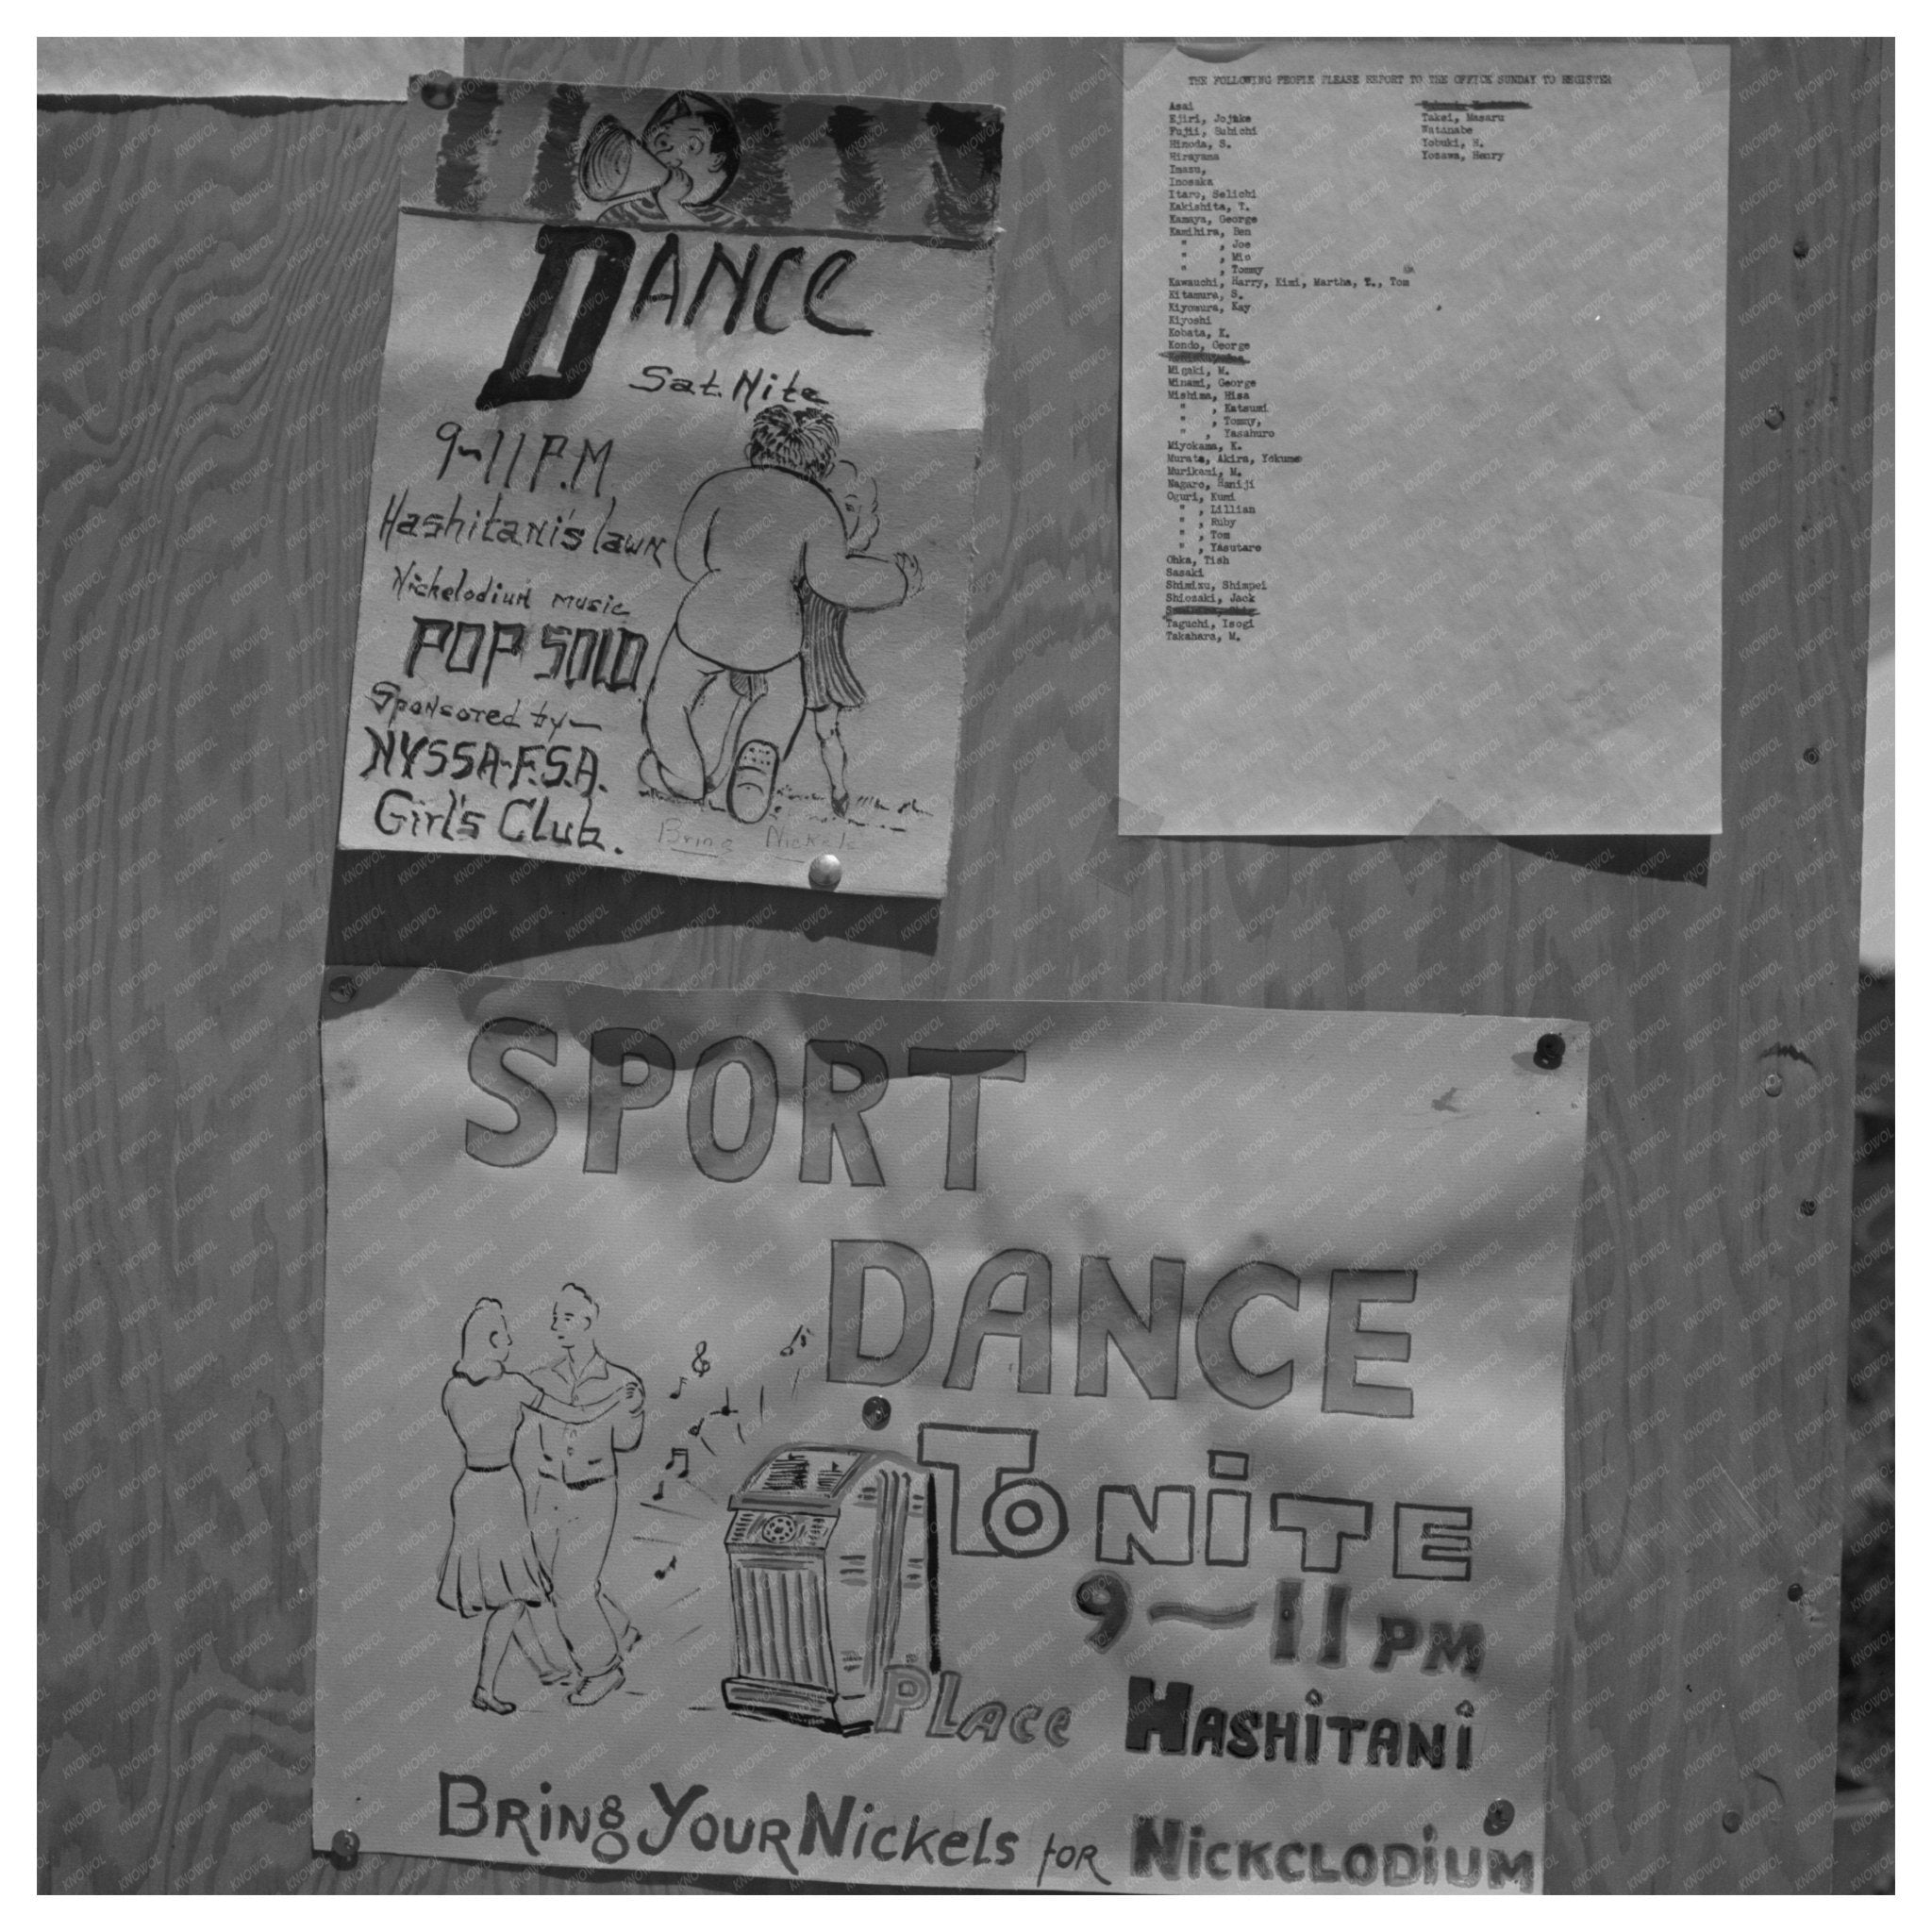 DANCE
Sat. Nite
9-11 P.M
Hashitani's lawn
Nickelodiun music
POP SOLD
Sponsored by—
NYSSA-F.S.A.
Girl's Club.
Bring Nickels
THE FOLLOWING PEOPLE PLEASE REPORT TO THE OFFICE SUNDAY TO REGISTER
Asai
Ejiri, Jojike
Fujii, Suhichi
Himoda, S.
Hirayama
Imazu,
Inosaka
Itaro, Seiichi
Kakishita, T.
Kamaya, George
Kamihira, Ben
" , Joe
" , Mio
" , Tommy
Kawauchi, Harry, Kimi, Martha, T., Tom
Kitamura, S.
Kiyomura, Kay
Kiyoshi
Kobata, K.
Kondo, George
Migaki, M.
Minami, George
Mishima, Hisa
" , Katsumi
" , Tommy,
" , Yasahuro
Miyokama, K.
Murata, Akira, Yokume
Murikami, M.
Nagaro, Haniji
Oguri, Kumi
" , Lillian
" , Ruby
" , Tom
" , Yasutaro
Ohka, Tish
Sasaki
Shimixu, Shimpei
Shiozaki, Jack
Taguchi, Isogi
Takahara, M.
Takei, Masaru
Watanabe
Yobuki, H.
Yozawa, Henry
SPORT
DANCE
TONITE
9~11 PM
PLACE HASHITANI
BRING YOUR NICKELS FOR NICKCLODIUM